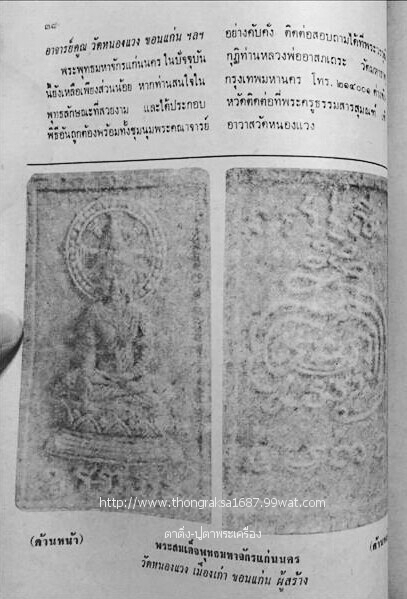 ๓๘
อาจารย์คูณ วัดหนองแวง ขอนแก่น ฯลฯ
พระพุทธมหาจักรแก่นนคร ในปัจจุบัน
นี้ยังเหลือเพียงส่วนน้อย หากท่านสนใจใน
พุทธลักษณะที่สวยงาม และได้ประกอบ
พิธีอันถูกต้องพร้อมทั้งชุมนุมพระคณาจารย์
อย่างคับคั่ง ติดต่อสอบถามได้ที่
กุฏิท่านหลวงพ่ออาสภเถระ
กรุงเทพมหานคร โทร. ๒๑๔๐๐๑
หวัดติดต่อที่พระครูธรรมสารสุมณฑ์
อาวาสวัดหนองแวง
http://www.thongraksa1687.99wat.com
ตาติ่ง-ปูตาพระเครื่อง
(ด้านหน้า)
พระสมเด็จพุทธมหาจักรแก่นนคร
วัดหนองแวง เมืองเก่า ขอนแก่น ผู้สร้าง